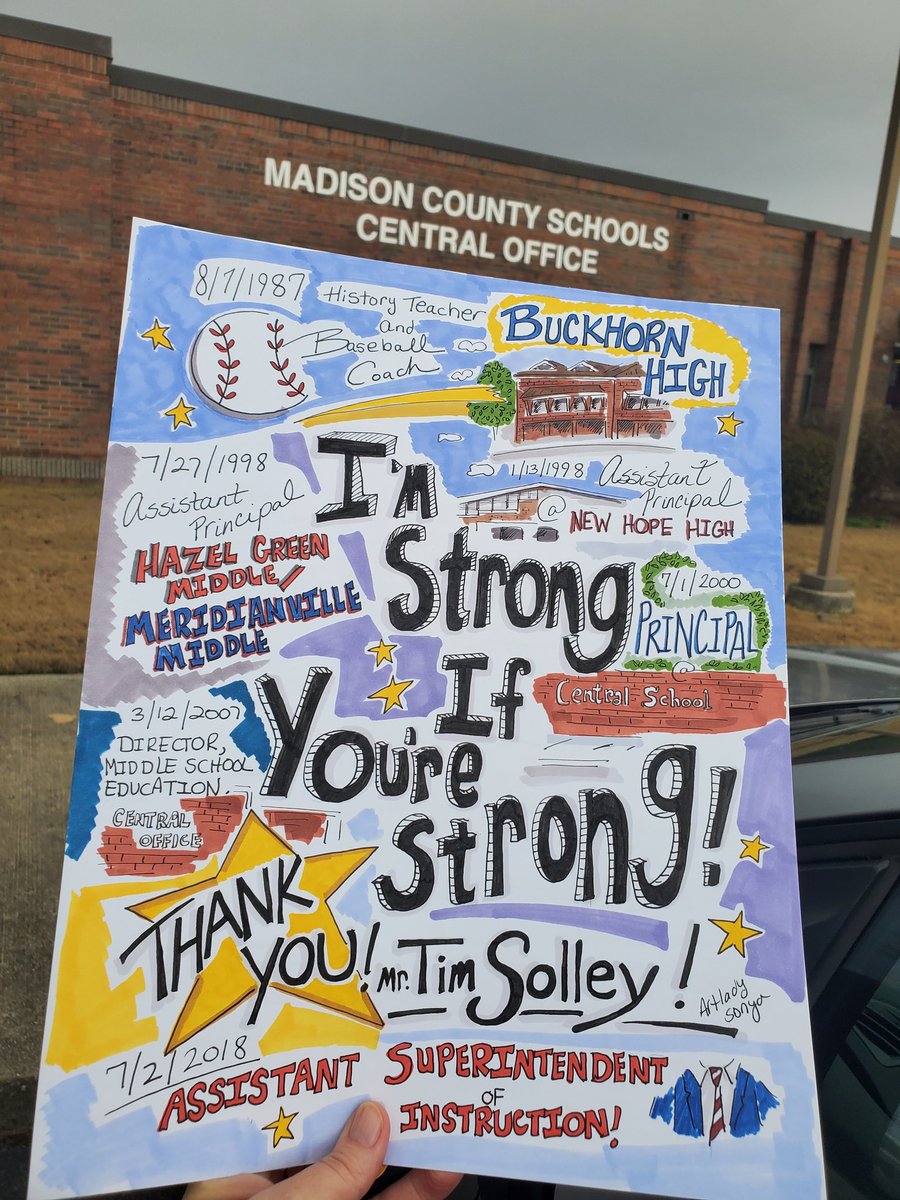 MADISON COUNTY SCHOOLS
CENTRAL OFFICE
8/7/1987
History Teacher
and
Baseball
Coach
BUCKHORN
HIGH
7/27/1998
Assistant
Principal
HAZEL GREEN
MIDDLE/
MERIDIANVILLE
MIDDLE
1/13/1998
Assistant
Principal
@
NEW HOPE HIGH
7/1/2000
PRINCIPAL
@
Central School
3/12/2007
DIRECTOR,
MIDDLE SCHOOL
EDUCATION.
CENTRAL
OFFICE
I'm
Strong
If
You're
Strong!
THANK
YOU! Mr. Tim Solley!
Artlady
Sonya
7/2/2018
ASSISTANT SUPERINTENDENT
OF
INSTRUCTION!